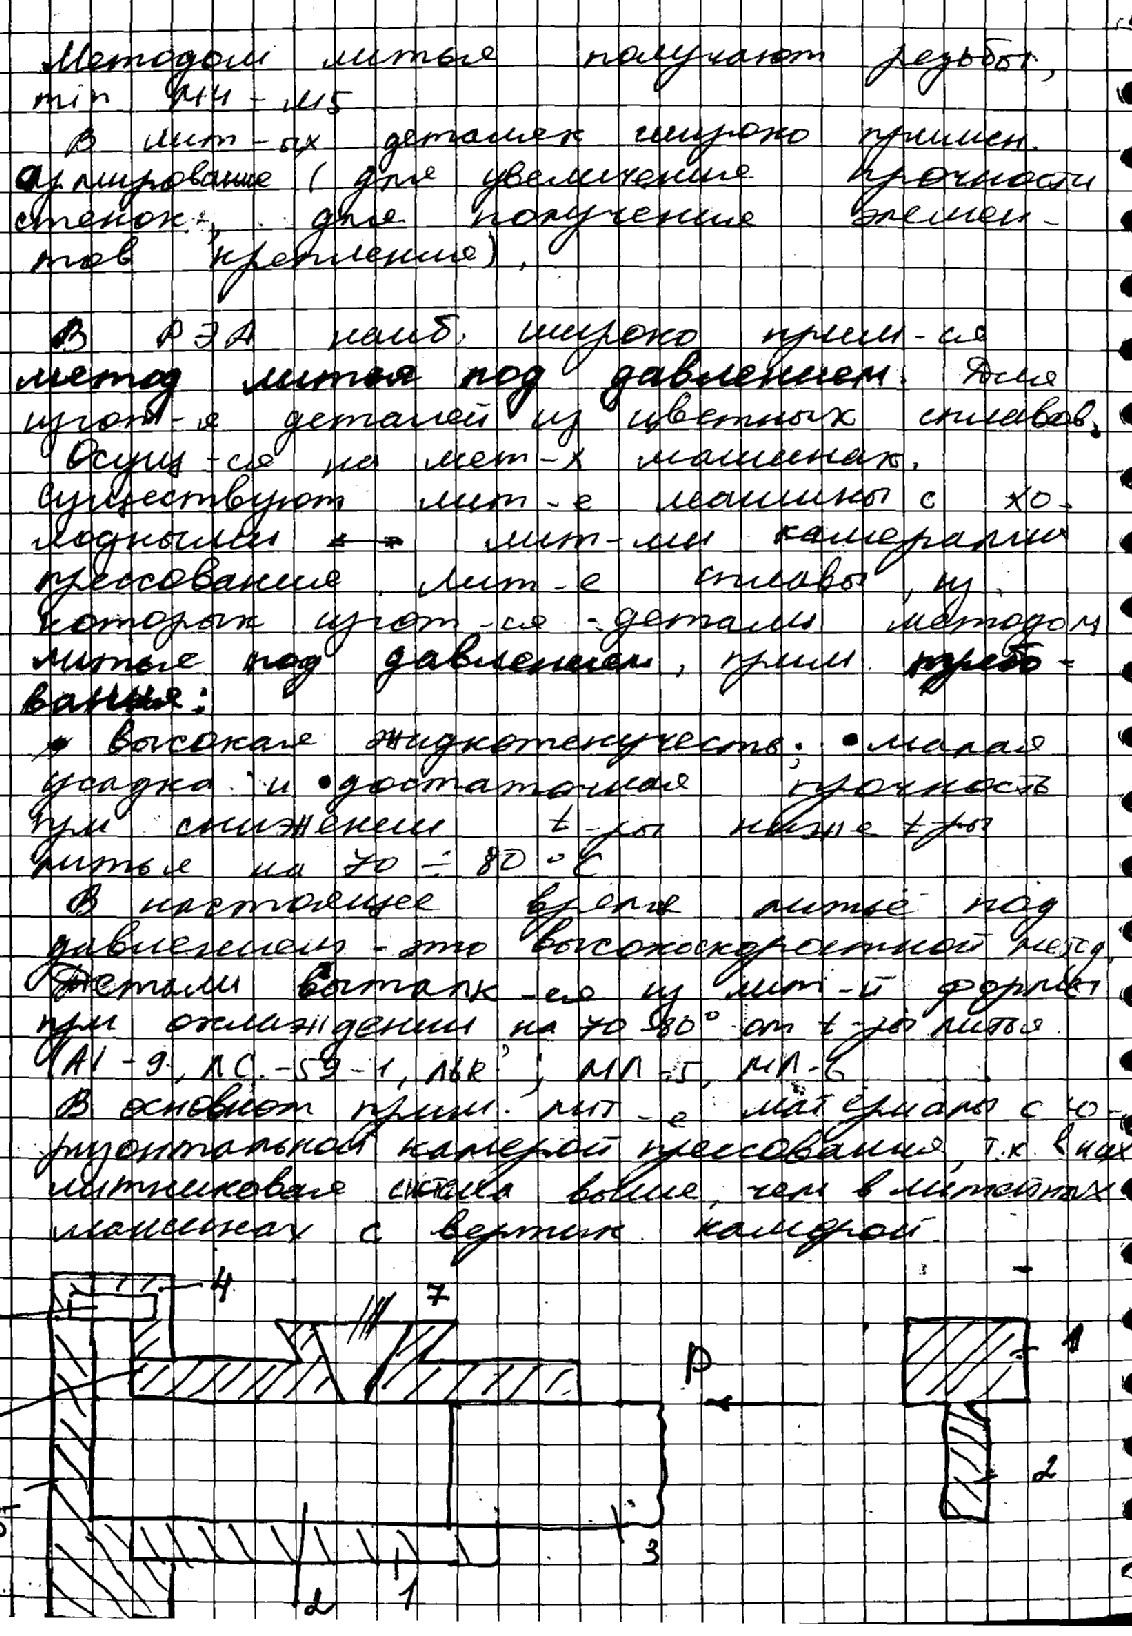 Методом литья получают резьбы,
min М4 - М5
В лит-ых деталях широко примен.
армирование (для увеличения прочности
стенок, для получения элемен-
тов крепления).
В РЭА наиб. широко прим-ся
метод литья под давлением. Для
изгот-я деталей из цветных сплавов.
Осущ-ся на мет-х машинах.
Существуют лит-е машины с хо-
лодными лит-ми камерами
прессования. Лит-е сплавы, из
которых изгот-ся детали методом
литья под давлением, прим. требо-
вания:
• высокая жидкотекучесть; • малая
усадка и • достаточная прочность
при снижении t-ры ниже t-ры
литья на 70 ÷ 80 °C
В настоящее время литьё под
давлением - это высокоскоростной метод.
Детали выталк-ся из лит-й формы
при охлаждении на 70-80° от t-ры литья.
(Al-9, ЛС-59-1, ЛК; МЛ-5, МЛ-6
В основном прим. лит-е материалы с го-
ризонтальной камерой прессования, т.к в них
литниковая система выше, чем в литейных
машинах с вертик. камерой
4
7
P
1
2
3
2
1